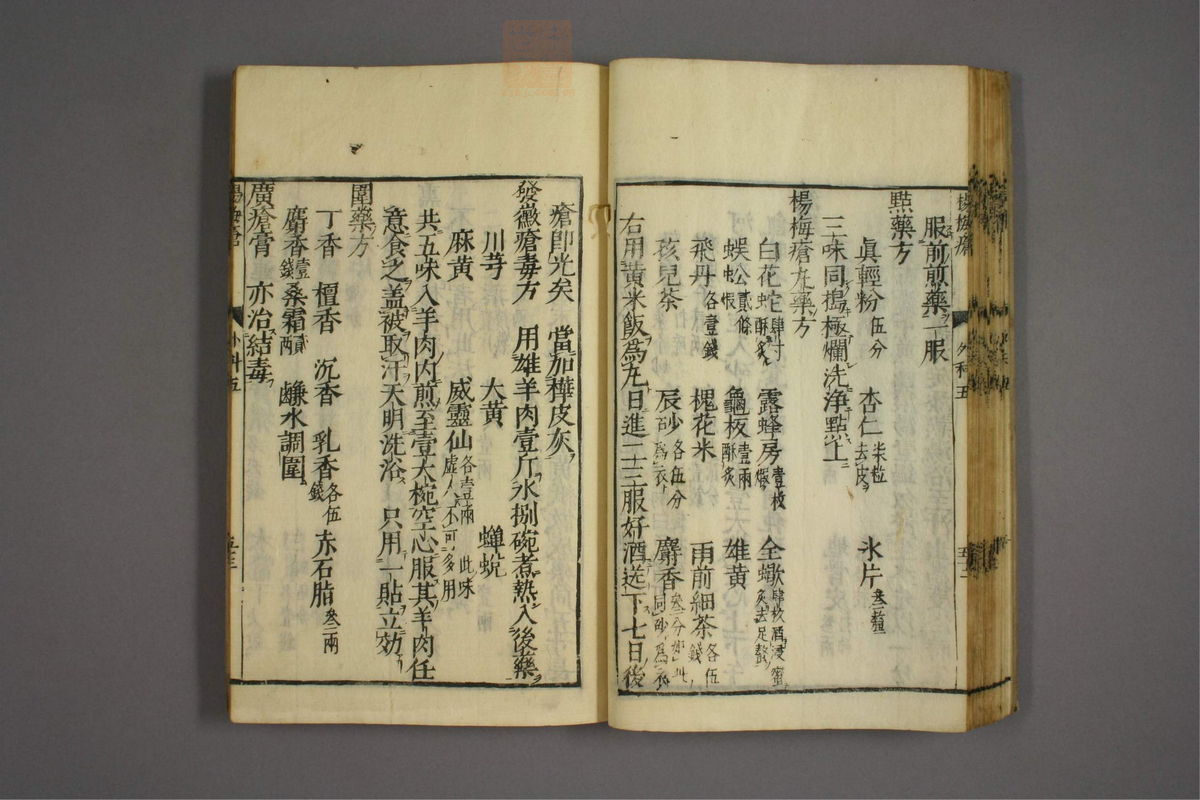 楊梅瘡 外科五
服前煎藥一服
點藥方
眞輕粉伍分 杏仁柒粒去皮 氷片叁釐
三味同搗極爛洗浄點上
楊梅瘡丸藥方
白花蛇肆寸酥炙 露蜂房壹枚煅 全蠍肆枚酒浸蜜炙去足螯
蜈公貳條煅 龜板壹兩酥炙 雄黄
飛丹各壹錢 槐花米 雨前細茶各伍錢
孩兒茶 辰砂各伍分砂爲衣 麝香叁分砂爲衣
右用黄米飯爲丸日進二十三服好酒送下七日後
瘡即光矣 當加樺皮灰
發黴瘡毒方 用雄羊肉壹斤水捌碗煮熟入後藥
川芎 大黄 蟬蛻
麻黄 威靈仙各壹兩 此味虚人不可多用
共五味入羊肉肉煎至壹大椀空心服其羊肉任
意食之盖被取汗天明洗浴 只用一貼立効
圍藥方
丁香 檀香 沉香 乳香各伍錢 赤石脂叁兩
麝香壹錢 桑霜貳兩 鹻水調圍
廣瘡膏 亦治結毒
楊梅瘡 外科五